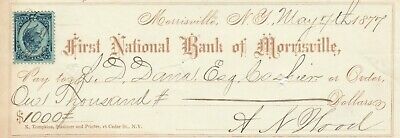 Morrisville, N.Y. May 7th 1877
First National Bank of Morrisville,
Pay to L. D. Dana Esq. Cashier or Order,
One Thousand # Dollars
$1000# A N Wood
N. Tompkins, Stationer and Printer, 28 Cedar St., N.Y.